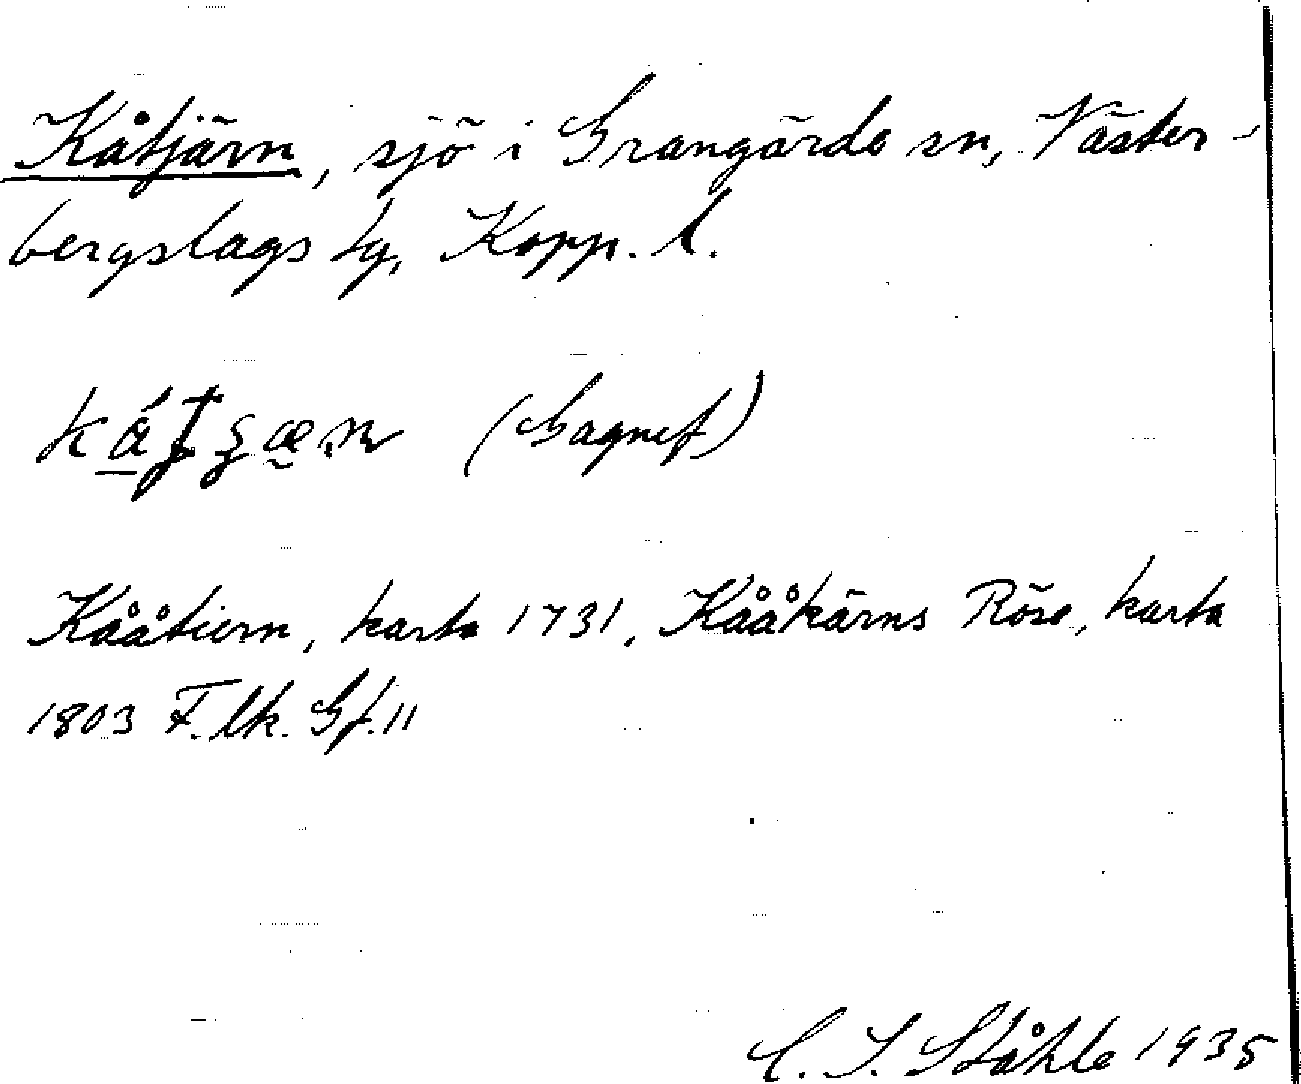 Kåtjärn, sjö i Grangärde sn, Väster-
bergslags tg, Kopp. l.
(Gagnef)
Kååtiern, karta 1731, Kååkärns Röse, karta
1803 F. lk. Gf. 11
C. I. Ståhle 1935